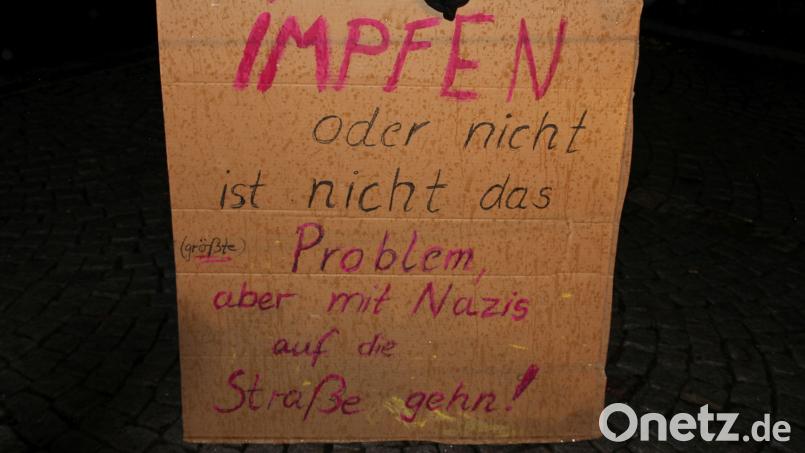 IMPFEN
oder nicht
ist nicht das
(größte) Problem,
aber mit Nazis
auf die
Straße gehn!
Onetz.de